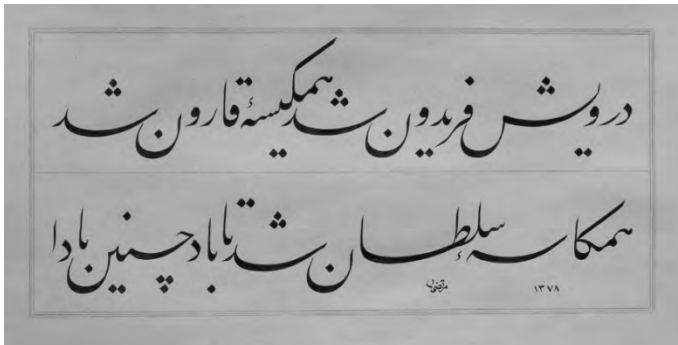 درویش فریدون شد همکیسهٔ قارون شد
همکاسهٔ سلطان شد تا باد چنین بادا
۱۳۷۸